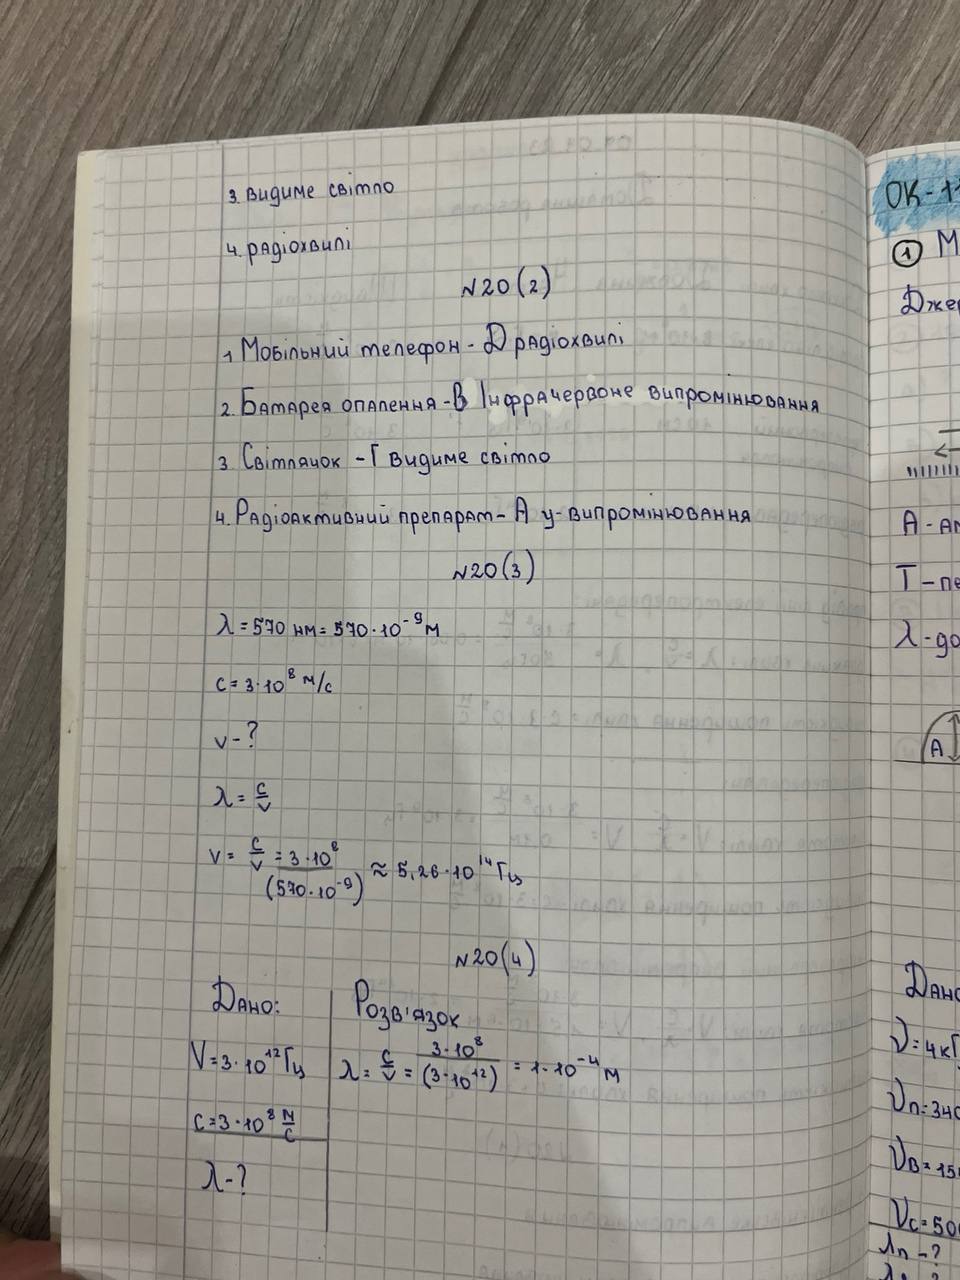 3. видиме світло
4. радіохвилі
№20(2)
1 Мобільний телефон - Д радіохвилі
2. Батарея опалення - В Інфрачервоне випромінювання
3. Світлячок - Г видиме світло
4. Радіоактивний препарат - А γ-випромінювання
№20(3)
λ = 570 нм = 570·10⁻⁹ м
c = 3·10⁸ м/с
v - ?
λ = c/v
v = c/v = 3·10⁸/(570·10⁻⁹) ≈ 5,26·10¹⁴ Гц
№20(4)
Дано:
V = 3·10¹² Гц
c = 3·10⁸ м/с
λ - ?
Розв'язок
λ = c/v = 3·10⁸/(3·10¹²) = 1·10⁻⁴ м
ОК-11
① М
Дже
А - ам
Т - пе
λ - до
А
Дано
ν = 4 кГ
νп = 340
νв = 15
νс = 500
λп - ?